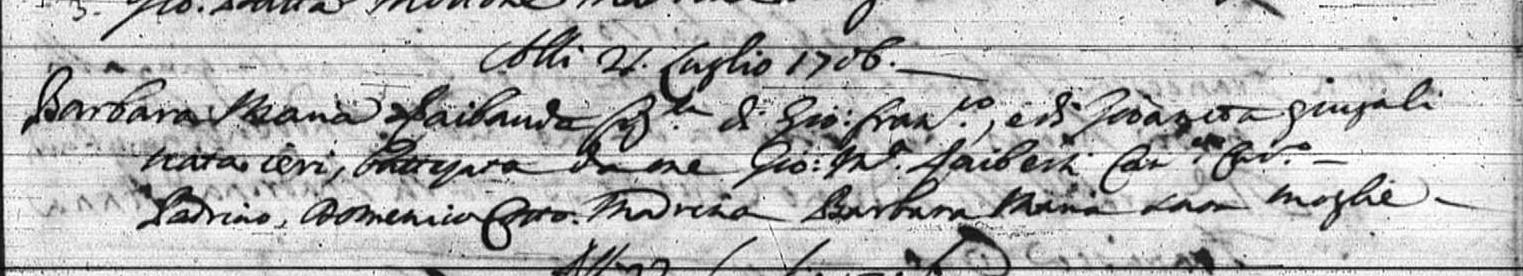 Gio: Batta
Alli 21. Luglio 1706.
Barbara Maria Raibauda figla di Gio: Franco, e di Gioaneta giugali
nata ieri, battezata da me Gio: Mª. Raiberti Can.co Cur.o
Padrino, Domenico Coto. Madrina Barbara Maria sua moglie
Alli 22